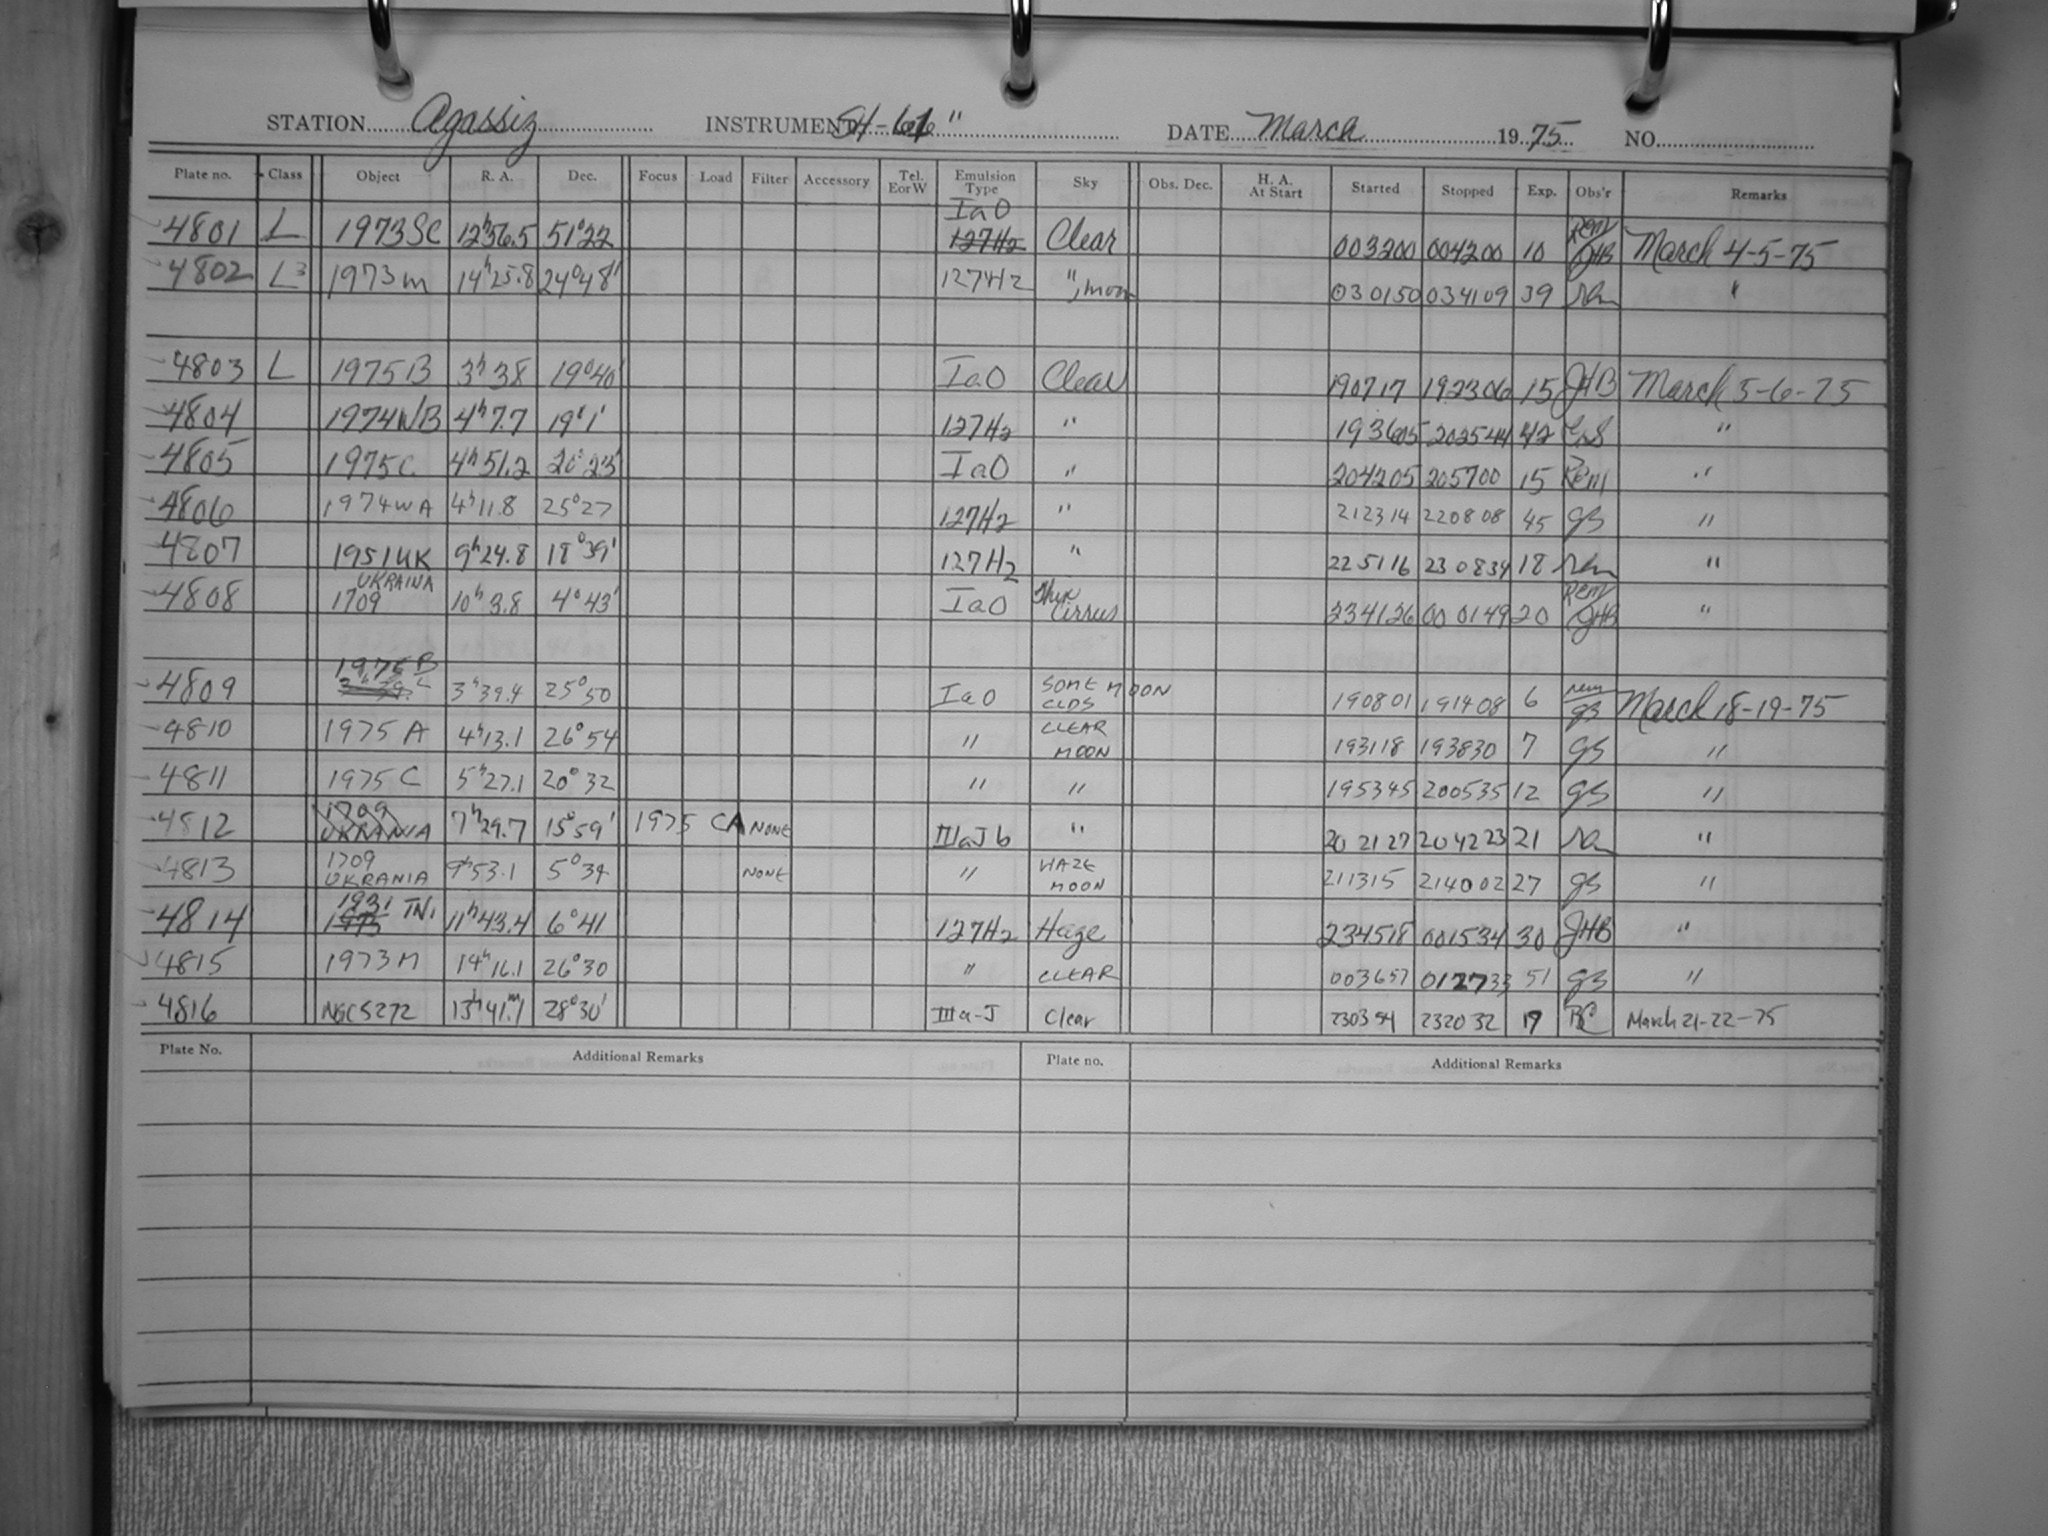 STATION Agassiz INSTRUMENT 54-61" DATE March 1975 NO.
Plate no. Class Object R. A. Dec. Focus Load Filter Accessory Tel. E or W Emulsion Type Sky Obs. Dec. H. A. At Start Started Stopped Exp. Obs'r Remarks
4801 L 1973SC 12h56.5 51°22 IaO 127H2 Clear 003200 004200 10 Rem/JHB March 4-5-75
4802 L3 1973m 14h25.8 24°48' 127H2 ", moon 030150 034109 39 rem "
4803 L 1975B 3h38 19°40' IaO Clear 190717 192306 15 JHB March 5-6-75
4804 1974WB 4h7.7 19°1' 127H2 " 193605 202544 42 "
4805 1975C 4h51.2 20°23' IaO " 204205 205700 15 Rem "
4806 1974WA 4h11.8 25°27 127H2 " 212314 220808 45 gs "
4807 1951UK 9h24.8 18°39' 127H2 " 225116 230834 18 rem "
4808 UKRAINA 1709 10h3.8 4°43' IaO Thin Cirrus 234126 000149 20 Rem/JHB "
4809 1975B 3h39.4 25°50 IaO SOME MOON CLDS 190801 191408 6 rem/gs March 18-19-75
4810 1975A 4h13.1 26°54 " CLEAR MOON 193118 193830 7 gs "
4811 1975C 5h27.1 20°32 " " 195345 200535 12 gs "
4812 1709 UKRANIA 7h29.7 15°59' 1975 CA NONE IIIaJ b " 202127 204223 21 rem "
4813 1709 UKRANIA 9h53.1 5°34 NONE " HAZE MOON 211315 214002 27 gs "
4814 1931 TN1 1973 11h43.4 6°41 127H2 Haze 234518 001534 30 JHB "
4815 1973M 14h16.1 26°30 " CLEAR 003657 012733 51 gs "
4816 NGC5272 13h41.m1 28°30' IIIa-J Clear 230354 232032 17 March 21-22-75
Plate No. Additional Remarks Plate no. Additional Remarks